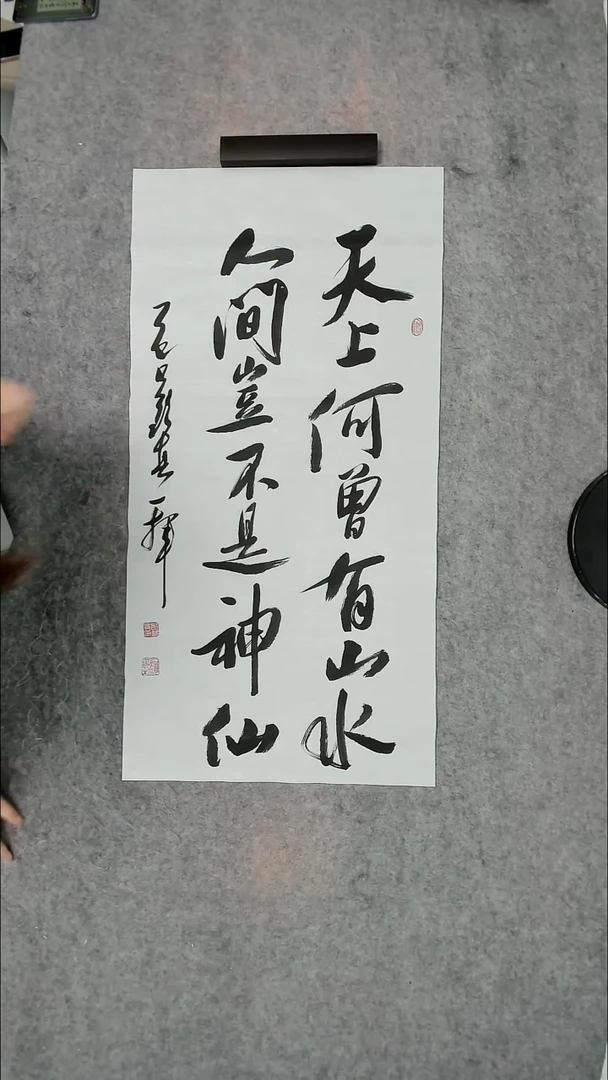 天上何曾有山水
人间豈不是神仙